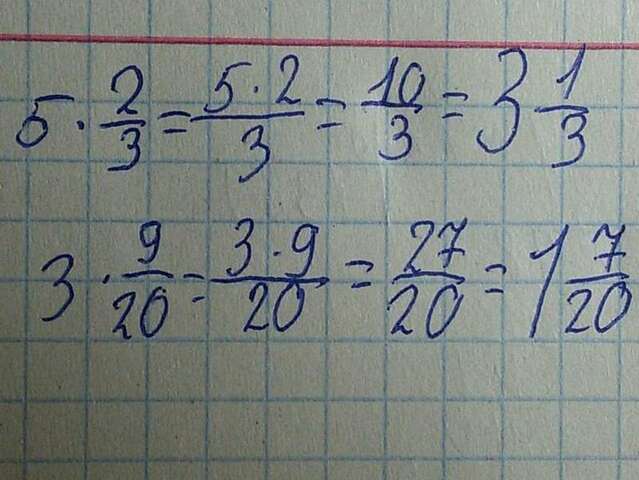 5 · 2/3 = 5·2/3 = 10/3 = 3 1/3
3 · 9/20 = 3·9/20 = 27/20 = 1 7/20